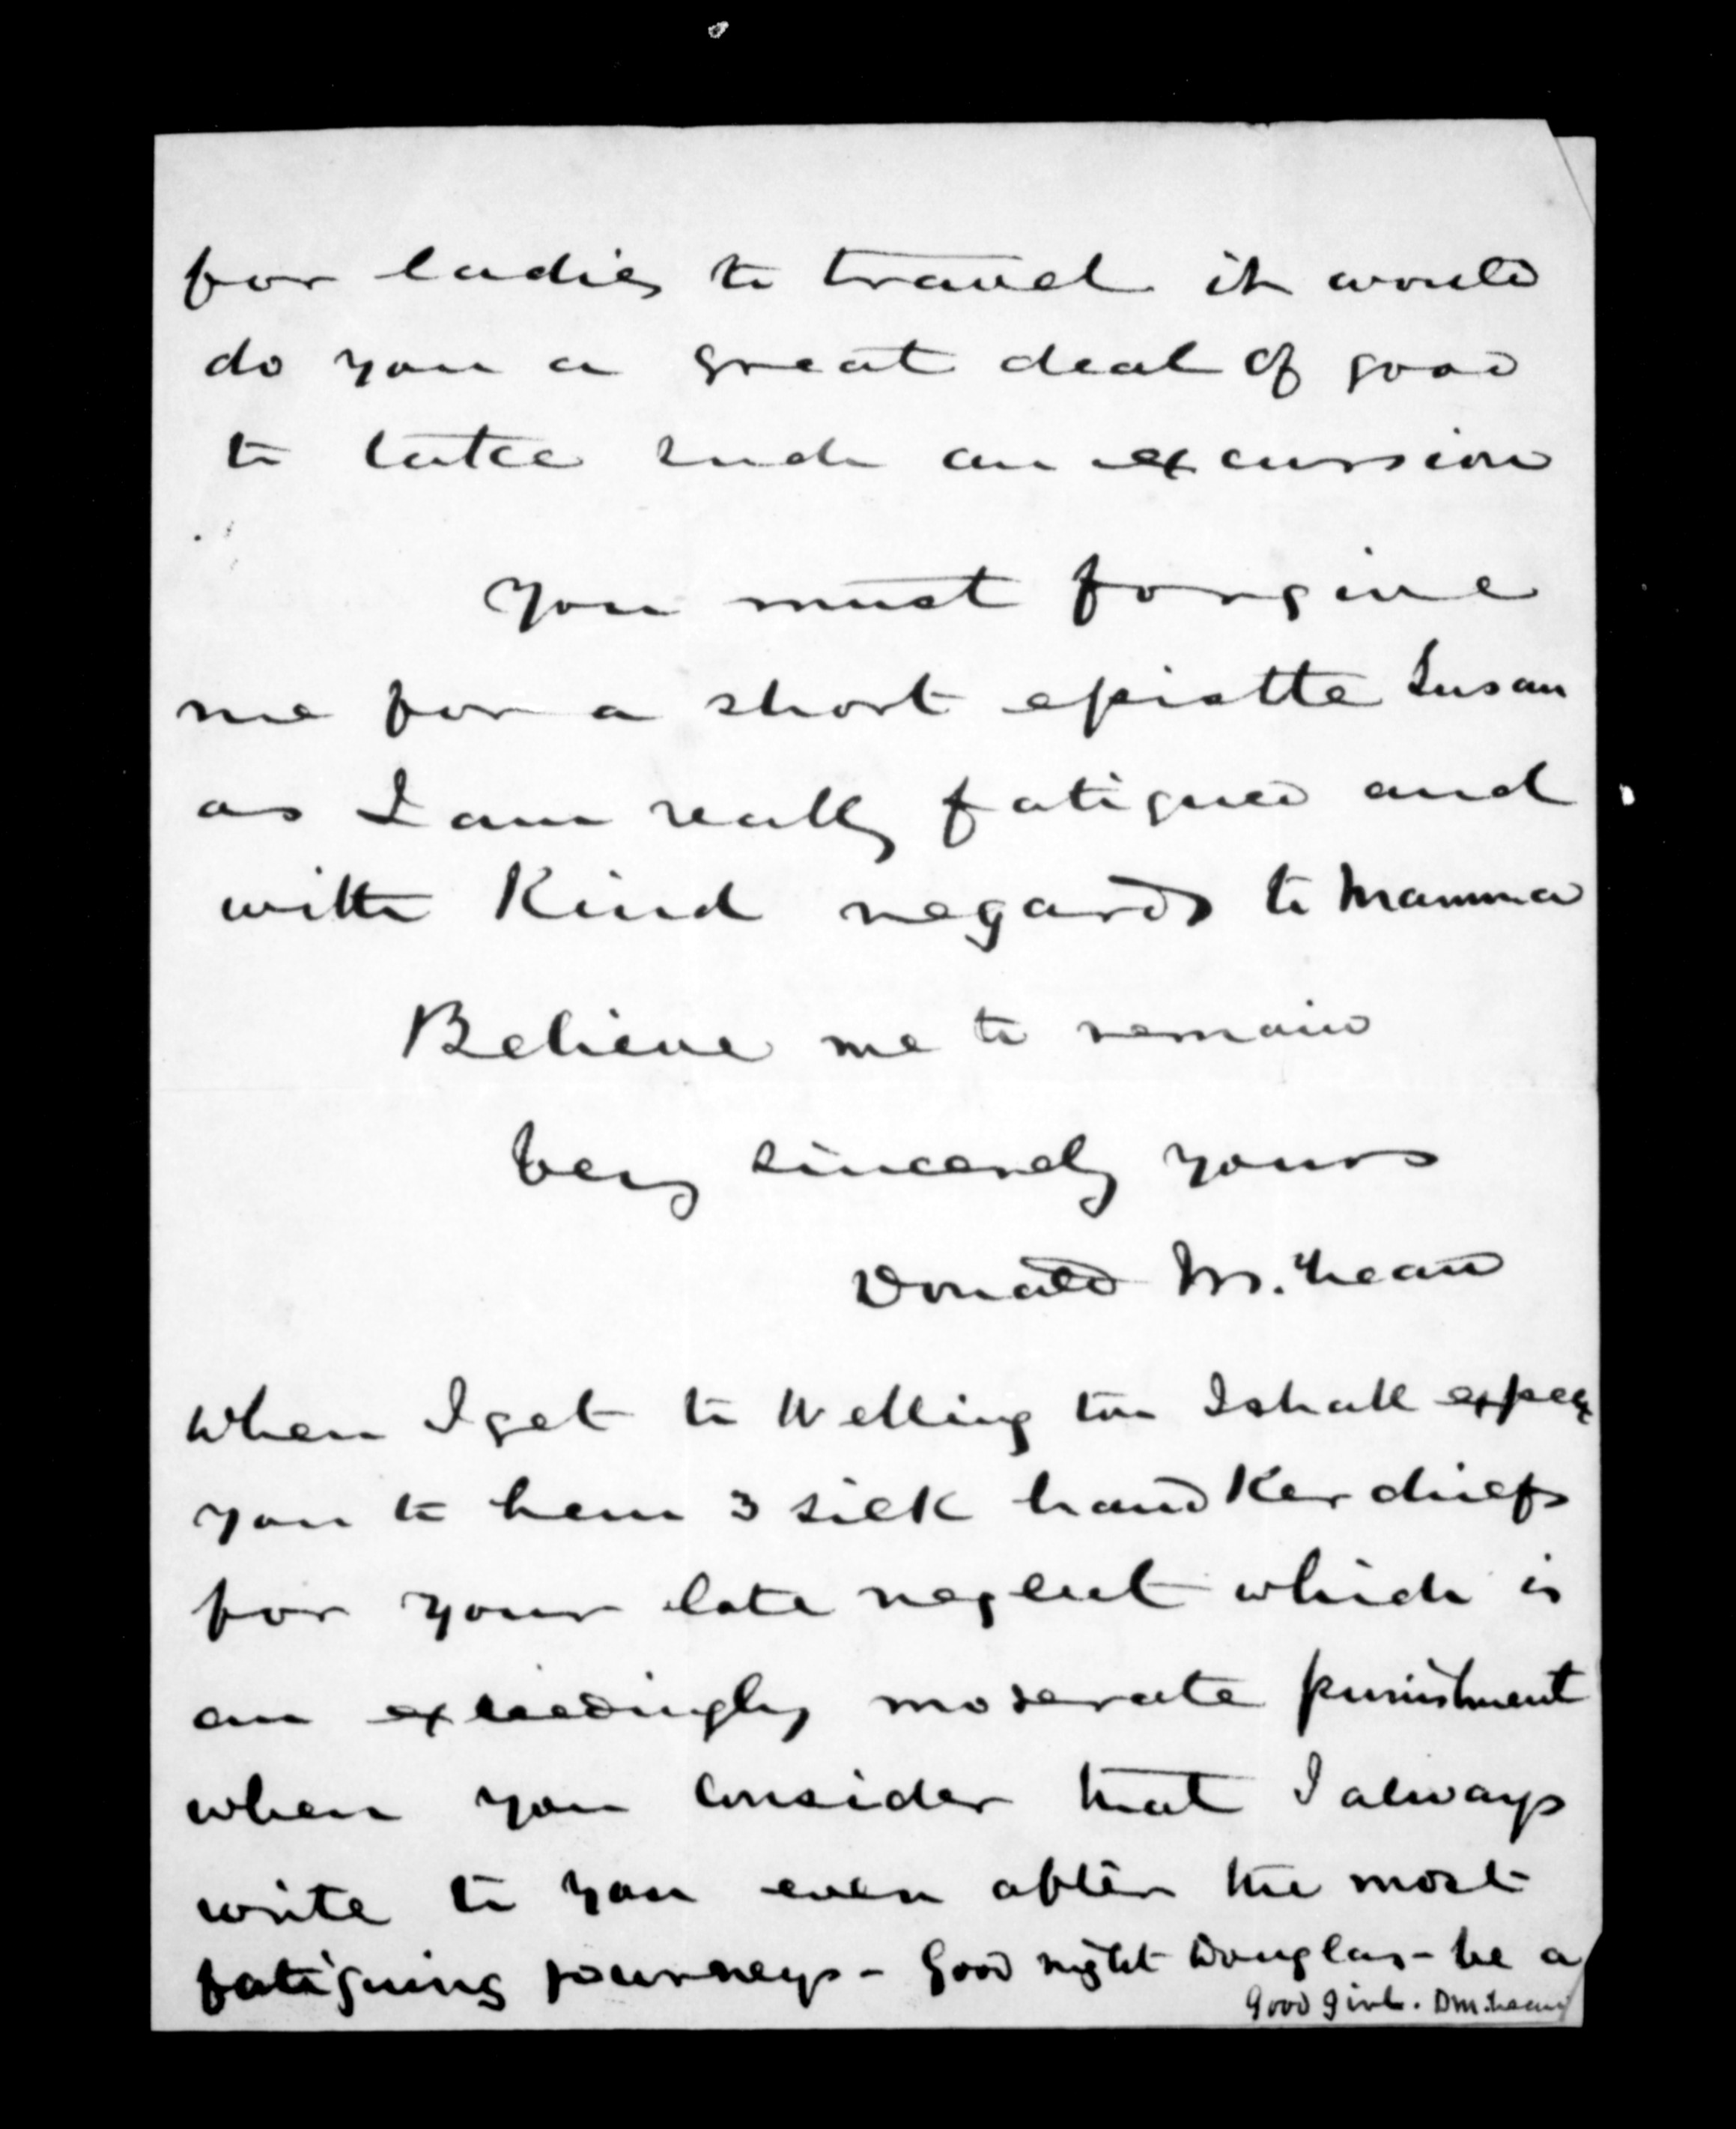 for ladies to travel it would
do you a great deal of good
to take such an excursion
You must forgive
me for a short epistle Susan
as I am really fatigued and
with Kind regards to Mamma
Believe me to remain
very sincerely yours
Donald McLean
When I get to Wellington I shall expect
you to hem 3 silk handkerchiefs
for your late neglect which is
an exceedingly moderate punishment
when you consider that I always
write to you even after the most
fatiguing journeys - Good night Douglas - be a
Good girl. DMcLean